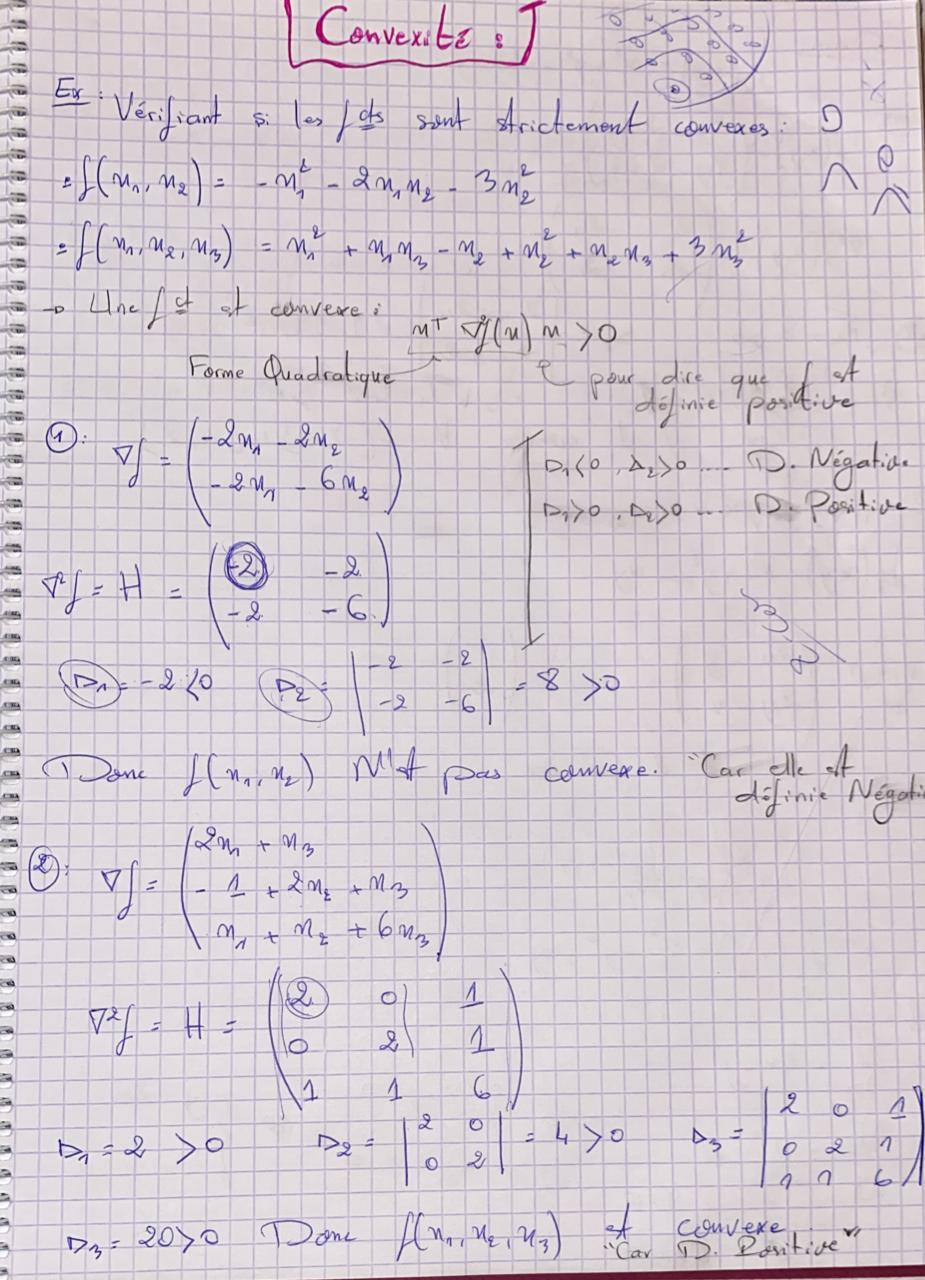 Convexité :
Ex : Vérifiant si les fcts sont strictement convexes :
= f(x₁, x₂) = -x₁² - 2x₁x₂ - 3x₂²
= f(x₁, x₂, x₃) = x₁² + x₁x₃ - x₂ + x₂² + x₂x₃ + 3x₃²
→ Une fct est convexe :
xᵀ ∇²f(x) x > 0
Forme Quadratique
pour dire que f est
définie positive
①: ∇f = ( -2x₁ - 2x₂
-2x₁ - 6x₂ )
D₁<0 , D₂>0 .... D. Négative
D₁>0 , D₂>0 ... D. Positive
∇²f = H = ( -2 -2
-2 -6 )
D₁ = -2 < 0 D₂ = | -2 -2
-2 -6 | = 8 > 0
Donc f(x₁, x₂) N'est pas convexe. "Car elle est
définie Négati
②: ∇f = ( 2x₁ + x₃
- 1 + 2x₂ + x₃
x₁ + x₂ + 6x₃ )
∇²f = H = ( 2 0 1
0 2 1
1 1 6 )
D₁ = 2 > 0 D₂ = | 2 0
0 2 | = 4 > 0 D₃ = | 2 0 1
0 2 1
1 1 6 |
D₃ = 20 > 0 Donc f(x₁, x₂, x₃) est convexe
"Car D. Positive"